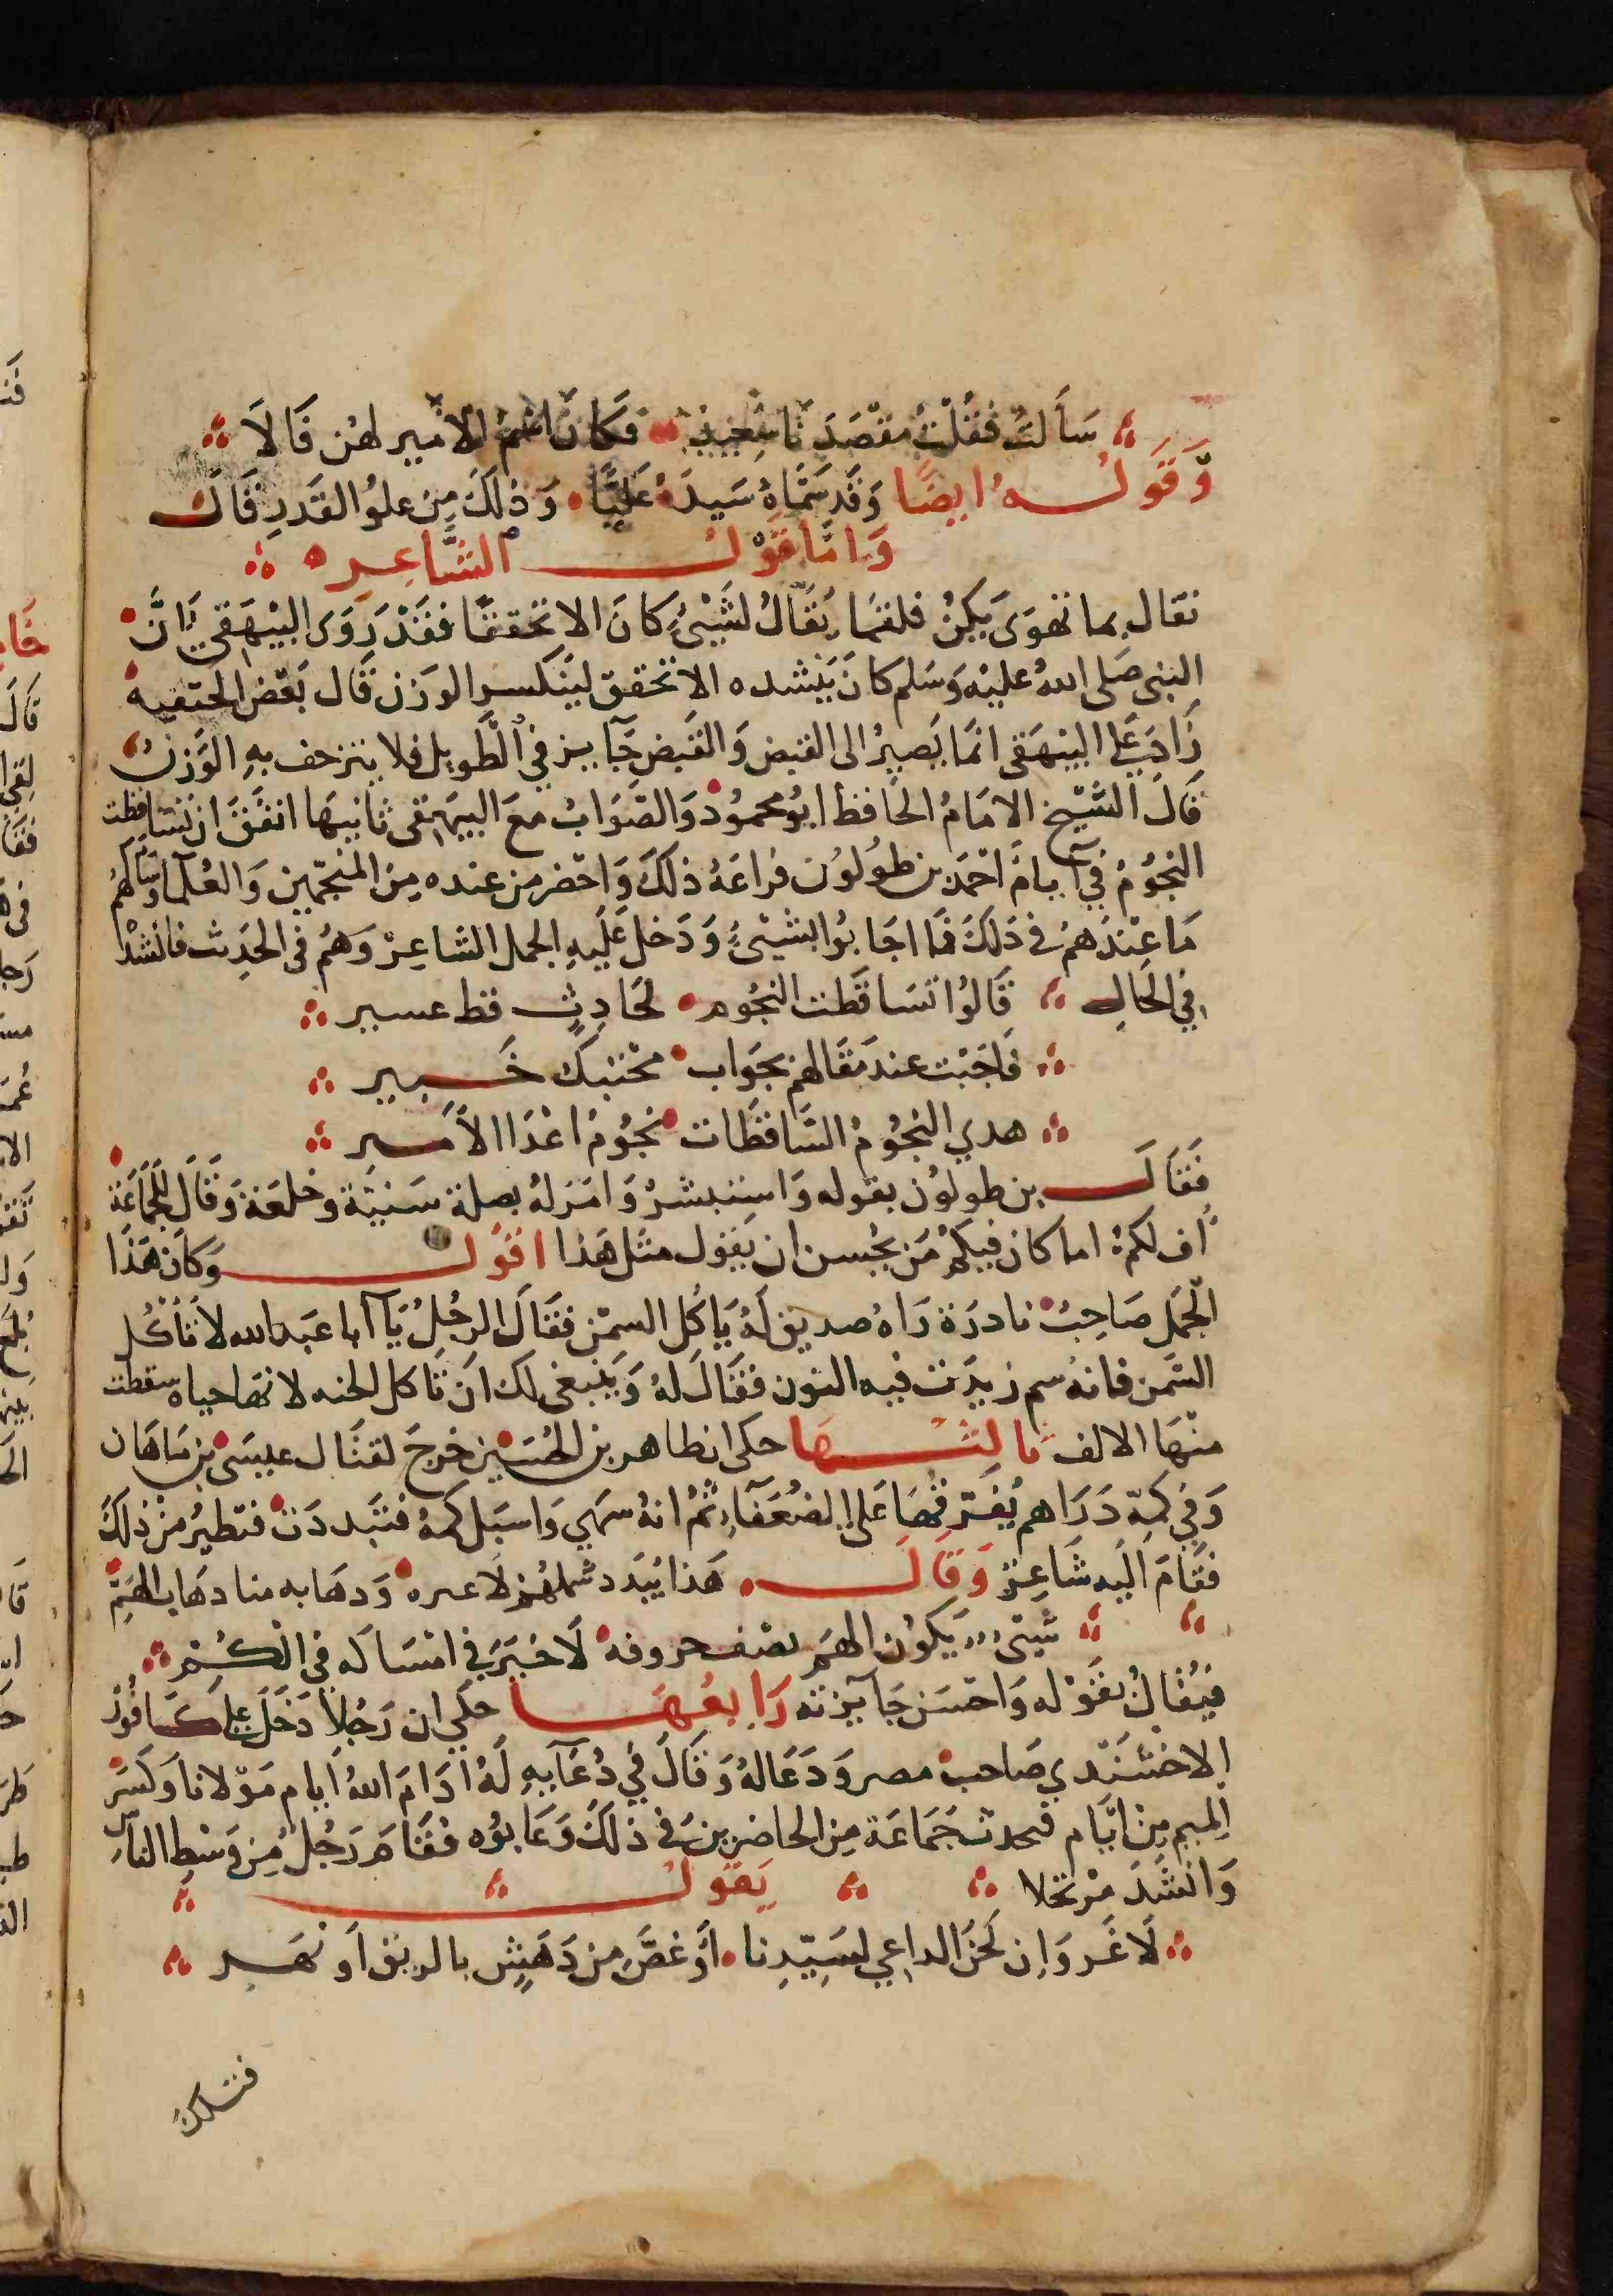 سَألتُ فقُلْتُ مقْصَدَنَا سَعِيدٌ فكانَ اسْمُ الامير لهُن فَالاَ
وَقَولـه ايضًا وَقَد سَمَّاهُ سَيدَهُ عَليًّا وَذلكَ مِن علوُ القَدر فَاك
وَامَّا قَوْل الشَّاعِر
تفال بما تهوَى يَكنْ فلقلما يُقَالُ لشَيْئٍ كانَ الا تحققَا فقَدْ رَوَى البَيْهَقى اَنَّ
النبى صَلى اللهُ عليْه وَسَلم كانَ يَنشده الا تحقق ليَنكسر الوَزن قال بَعْض
زَادَ عَلى البَيْهَقى انمَا يَصيرُ الى القبض وَالقَبض جَآيز فى الطَّويل فلا ينزحف بهِ الوَزنُ
قَالَ الشيْخ الامَامُ الحَافظ ابُو محمُودْ وَالصَّوَابُ معَ البَيهَقى ثانيهَا اتفَقَ ان تسَاقطت
النجُومُ فى اَيامِ احْمَد بن طُولوُن فراعَهُ ذلكَ وَاحْضر من عنده مِنَ المنجّمين وَالعُلمآ وَسَالهُم
مَا عِنْدَهُمْ فى ذَلكَ فمَا اجَابوُا بشَيْئٍ وَدَخل عَلَيهِ الجمل الشاعِرْ وَهُم فى الحَدِيث فانشدْ
فى الحَالِ قَالوُا تسَاقَطت النجُوم لحَادِثٍ قط عسير
فَاجَبْت عند مقَالهِم بجَواب محْتنِك خَبير
هدي النجُومُ السَّاقطَات نجُومُ اعْدَا الاَمير
فَقَالَ بن طولوُن بقوله وَاستبشرْ وَامَرَ لهُ بصلة سَنيَّة وخلعَة وَقَال للجَمَاعَة
اُف لكمْ اما كان فيكُمْ مَن يحُسن ان يَقول مثل هَذا اقوُل وَكانَ هَذَا
الجَمَل صَاحِبُ نادرَة رَاهُ صديق لَهُ يَاكل السمْن فقَالَ الرجُلُ يَا ابا عَبد الله لا تَأكُل
السَّمن فانهُ سم زيدَت فيه النون فقَالَ لهُ وَيَنبغى لك انْ تَاكل الحنه لانهَا حياه سقطت
منْهَا الالف ثالثـهَا حكى ان طاهر بن الحُسَين خرجَ لقتَال عيسَى بن مَاهَان
وَفى كمّه دَرَاهم يُفَرّقهَا عَلى الضعَفَآء ثُمَّ انهُ سهي وَاسبَل كمهُ فتبَددَتْ فتطيرُ منْ ذلكَ
فقَامَ اليه شَاعِرْ وَقَالَ هَذا يُبَدد شملهُم لا غيره وَدهَابه منا دهَاب الهَمّ
شَىْ يَكونُ الهَم نصْف حروفه لاَ خيَرَ فى امْسَاكه فى الكُـمّ
فتفَالُ بقَوْله وَاحسَن جَآيزته رَابعُهَـا حكى ان رَجُلاً دَخَلَ عَلى كـَافُور
الاخشَندي صَاحب مصر وَدَعَا لهُ وَقَالَ فى دُعَآيهِ لَهُ ادَامَ اللهُ اَيام مَوْلانا وَكسَرَ
المِيم مِن ايَّام فتحدث جَمَاعَة مِن الحَاضرين فى ذلكَ وَعَابوُه فقَامَ رَجُل مِن وَسْط النَّاس
وَانشَدَ مرْتجلا يَقوُلُ
لاَ غَروَ اِن لَحَنَ الدَاعى لسَيِّدِنا اَوْ غصَّ مِن دَهَشٍ بالريق اَو نهَر